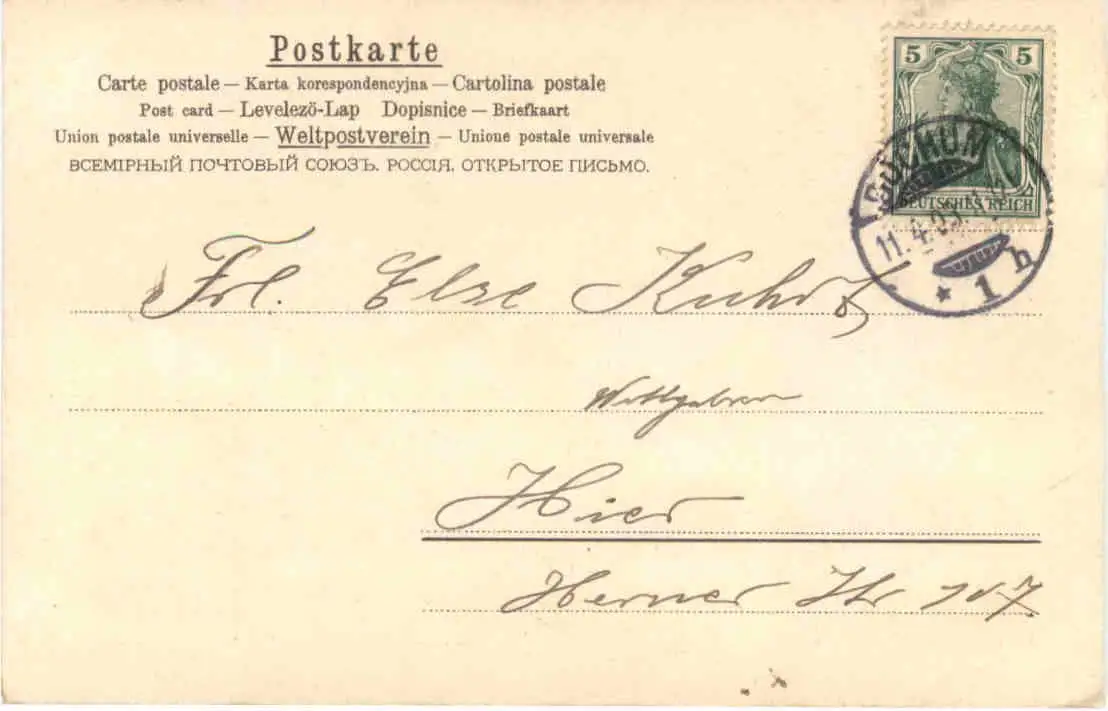 Postkarte
Carte postale — Karta korespondencyjna — Cartolina postale
Post card — Levelezö-Lap Dopisnice — Briefkaart
Union postale universelle — Weltpostverein — Unione postale universale
ВСЕМІРНЫЙ ПОЧТОВЫЙ СОЮЗЪ. РОССІЯ. ОТКРЫТОЕ ПИСЬМО.
5 5
DEUTSCHES REICH
BOCHUM
11.4.05.
* 1 h
Frl. Else
Wohlgeboren
Hier
Herner Str